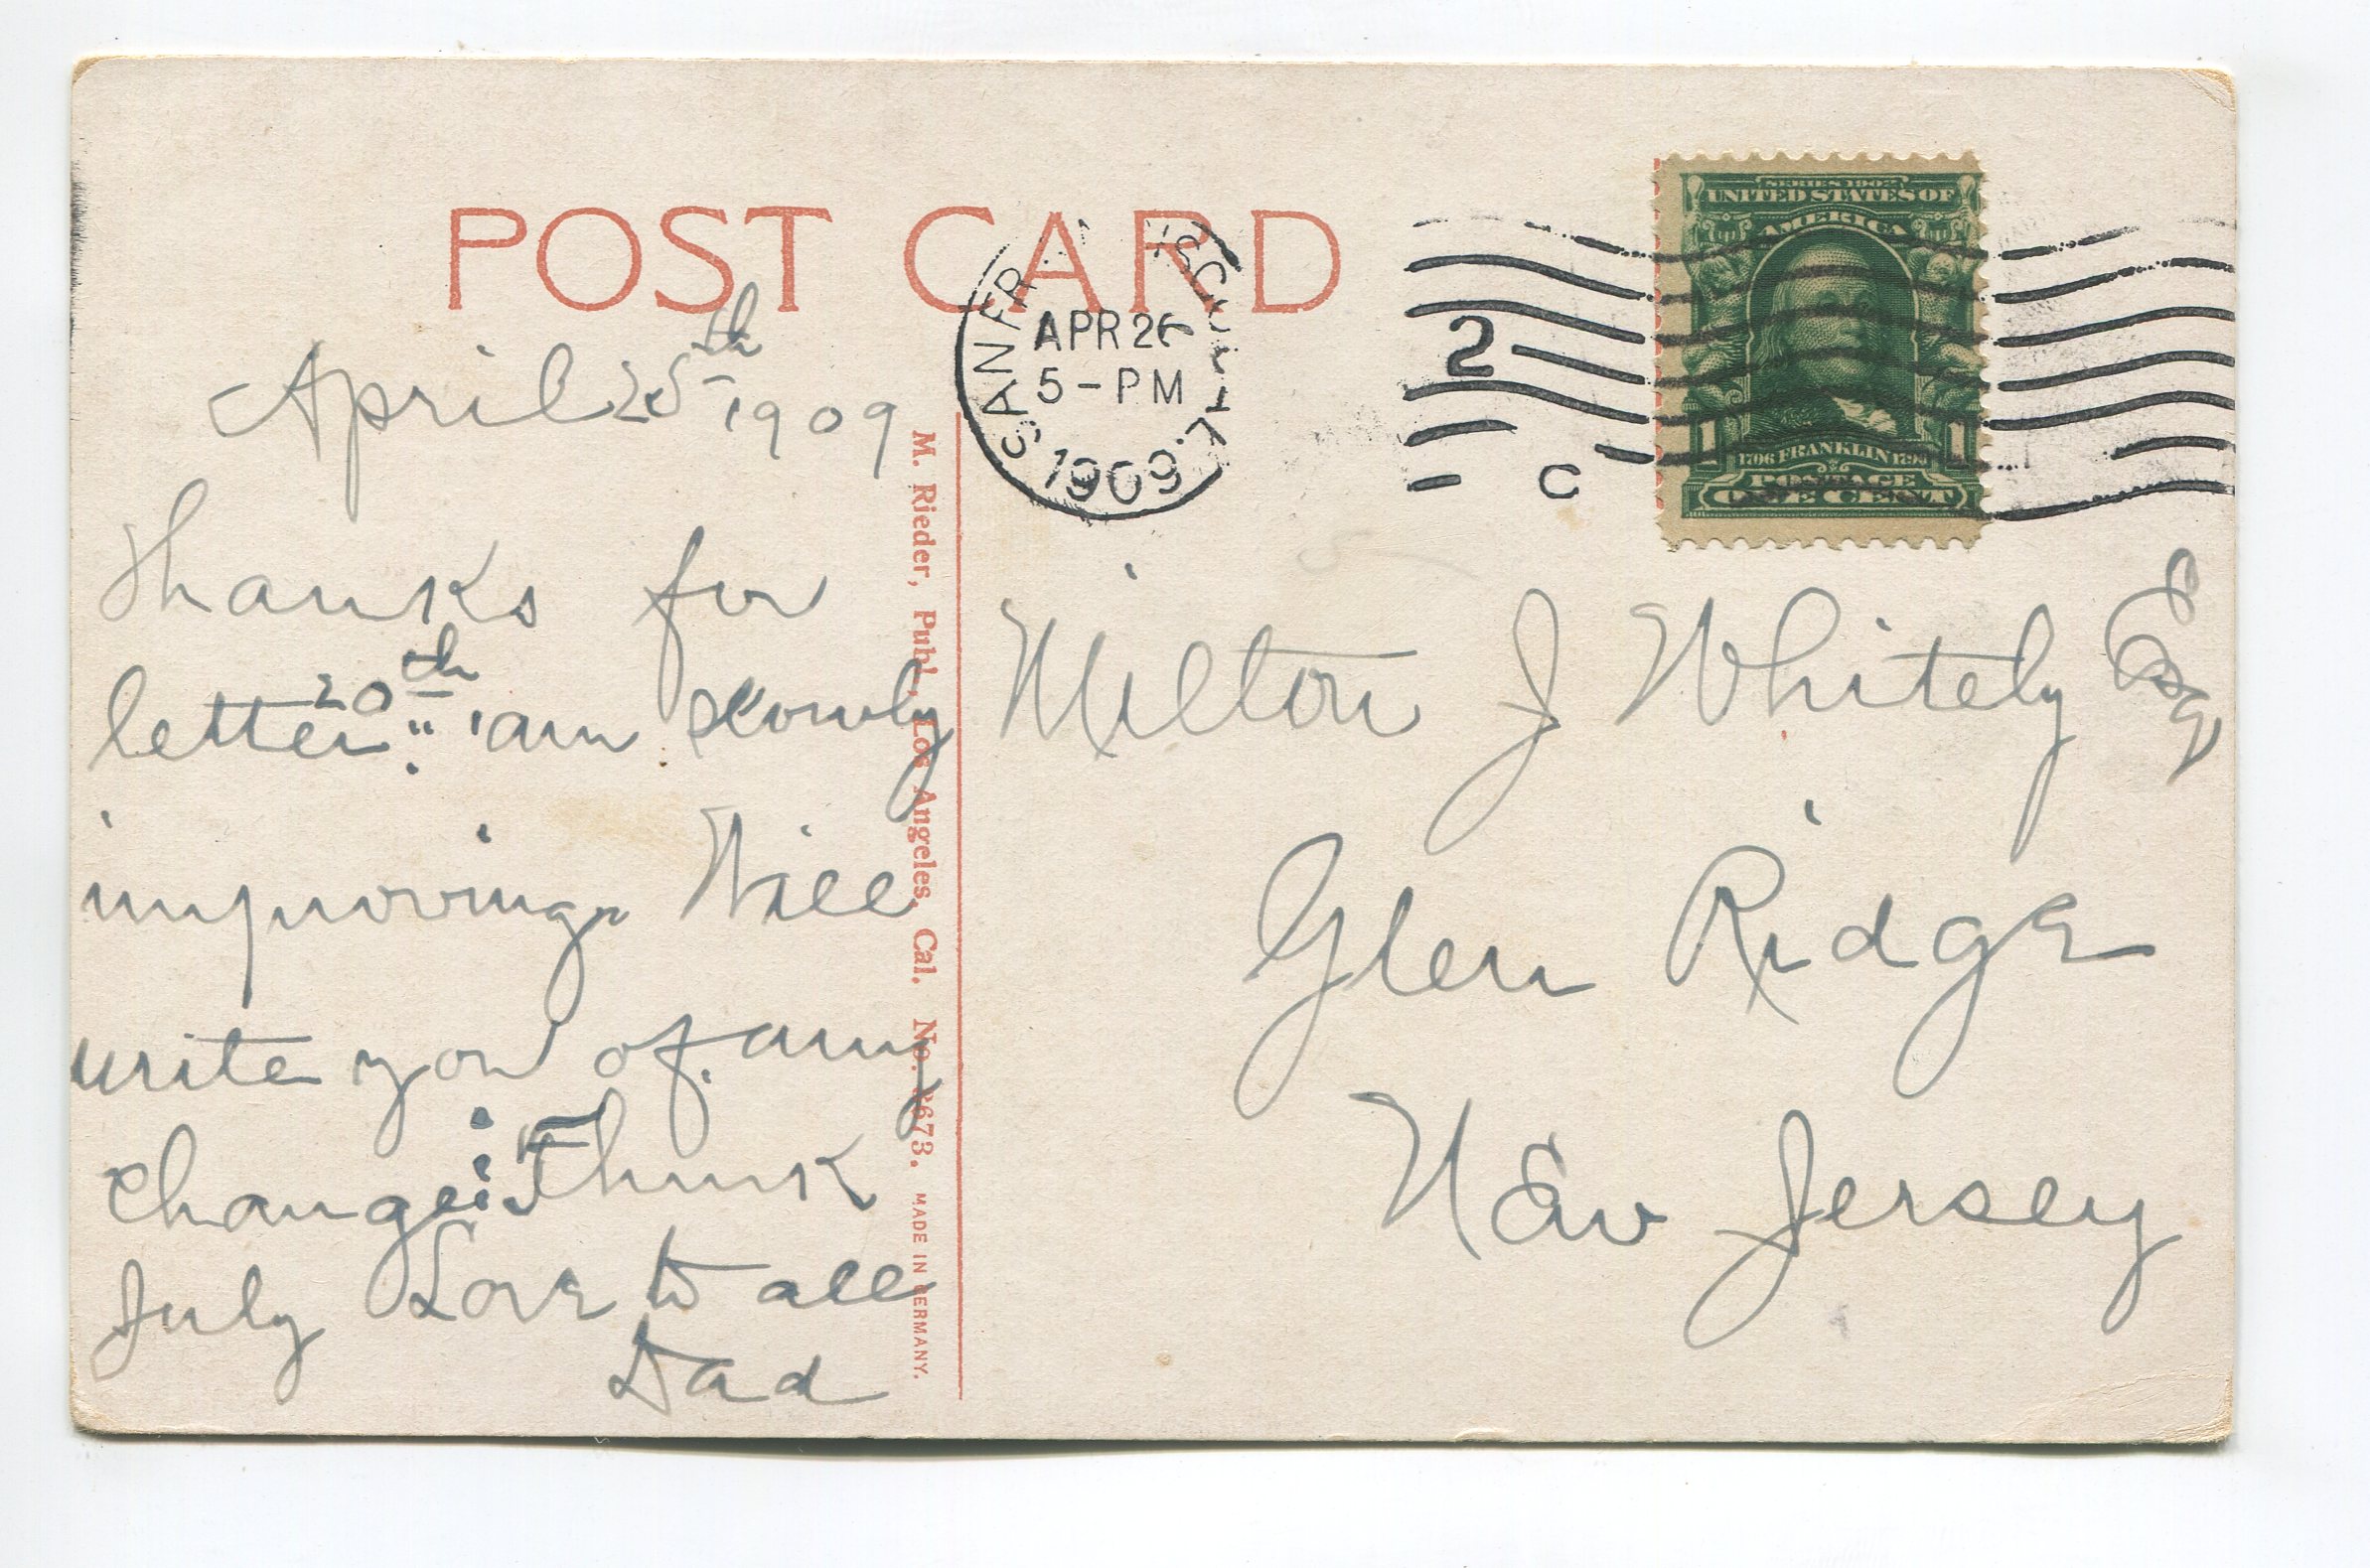 POST CARD
April 25th 1909
Thanks for
letter 20th " am slowly
improving. Will
write you of any
change: Think
July Love to all
Dad
M. Rieder, Publ., Los Angeles, Cal. No. 3673. MADE IN GERMANY.
SAN FR ISCO, CAL.
APR 26
5-PM
1909
2
C
SERIES 1902
UNITED STATES OF
AMERICA
1 1706 FRANKLIN 1790 1
POSTAGE
ONE CENT
Milton J Whitely Esq
Glen Ridge
New Jersey